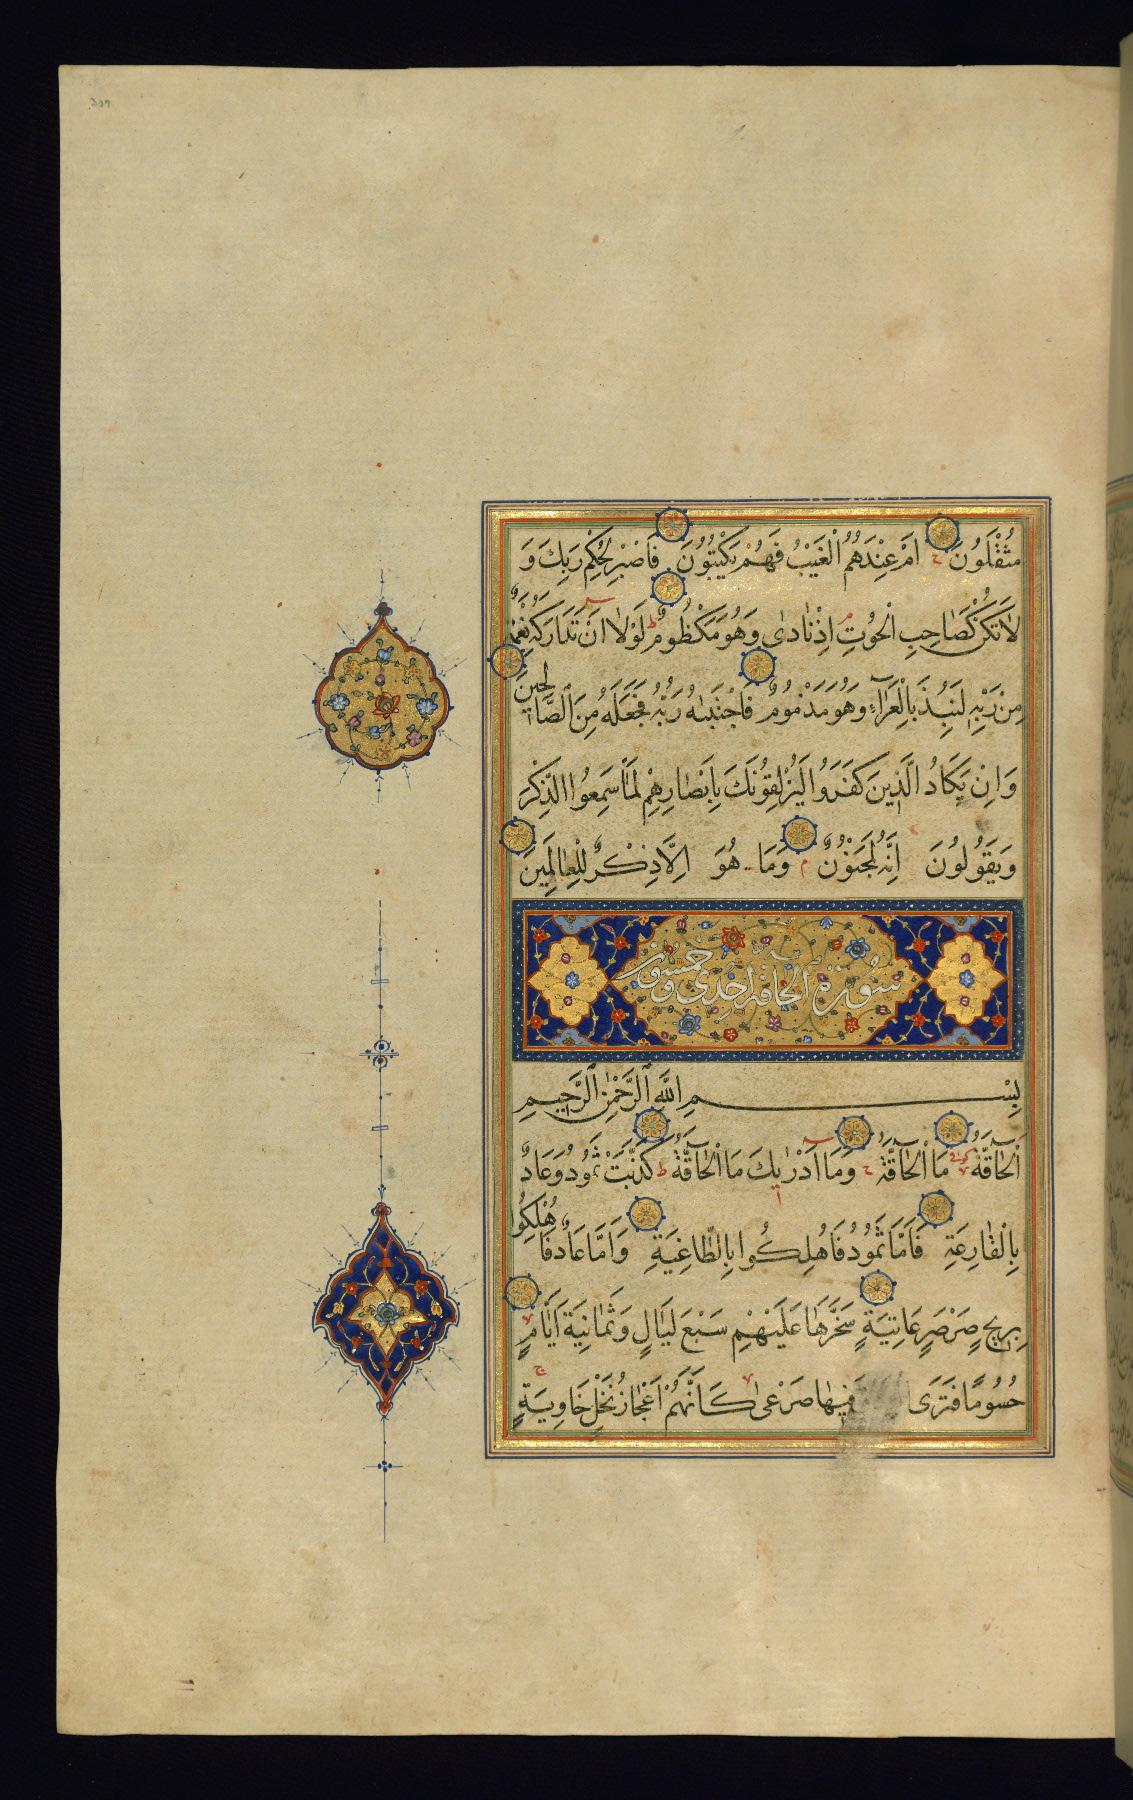 307
مُثْقَلُونَ ح اَمْ عِنْدَهُمُ الْغَيْبُ فَهُمْ يَكْتُبُونَ فَاصْبِرْ لِحُكْمِ رَبِّكَ وَ
لَا تَكُنْ كَصَاحِبِ الْحُوتِ م اِذْ نَادٰى وَهُوَ مَكْظُومٌ ط لَوْلَا اَنْ تَدَارَكَهُ نِعْمَةٌ
مِنْ رَبِّهِ لَنُبِذَ بِالْعَرَآءِ وَهُوَ مَذْمُومٌ فَاجْتَبٰىهُ رَبُّهُ فَجَعَلَهُ مِنَ الصَّالِحِينَ
وَاِنْ يَكَادُ الَّذِينَ كَفَرُوا لَيُزْلِقُونَكَ بِاَبْصَارِهِمْ لَمَّا سَمِعُوا الذِّكْرَ
وَيَقُولُونَ اِنَّهُ لَمَجْنُونٌ م وَمَا هُوَ اِلَّا ذِكْرٌ لِلْعَالَمِينَ
سورة الحاقة احدى وخمسون
بِسْمِ اللّٰهِ الرَّحْمٰنِ الرَّحِيمِ
اَلْحَآقَّةُ مَا الْحَآقَّةُ ح وَمَا اَدْرٰيكَ مَا الْحَآقَّةُ ط كَذَّبَتْ ثَمُودُ وَعَادٌ
بِالْقَارِعَةِ فَاَمَّا ثَمُودُ فَاُهْلِكُوا بِالطَّاغِيَةِ وَاَمَّا عَادٌ فَاُهْلِكُوا
بِرِيحٍ صَرْصَرٍ عَاتِيَةٍ سَخَّرَهَا عَلَيْهِمْ سَبْعَ لَيَالٍ وَثَمَانِيَةَ اَيَّامٍ
حُسُومًا فَتَرَى فِيهَا صَرْعٰى كَاَنَّهُمْ اَعْجَازُ نَخْلٍ خَاوِيَةٍ